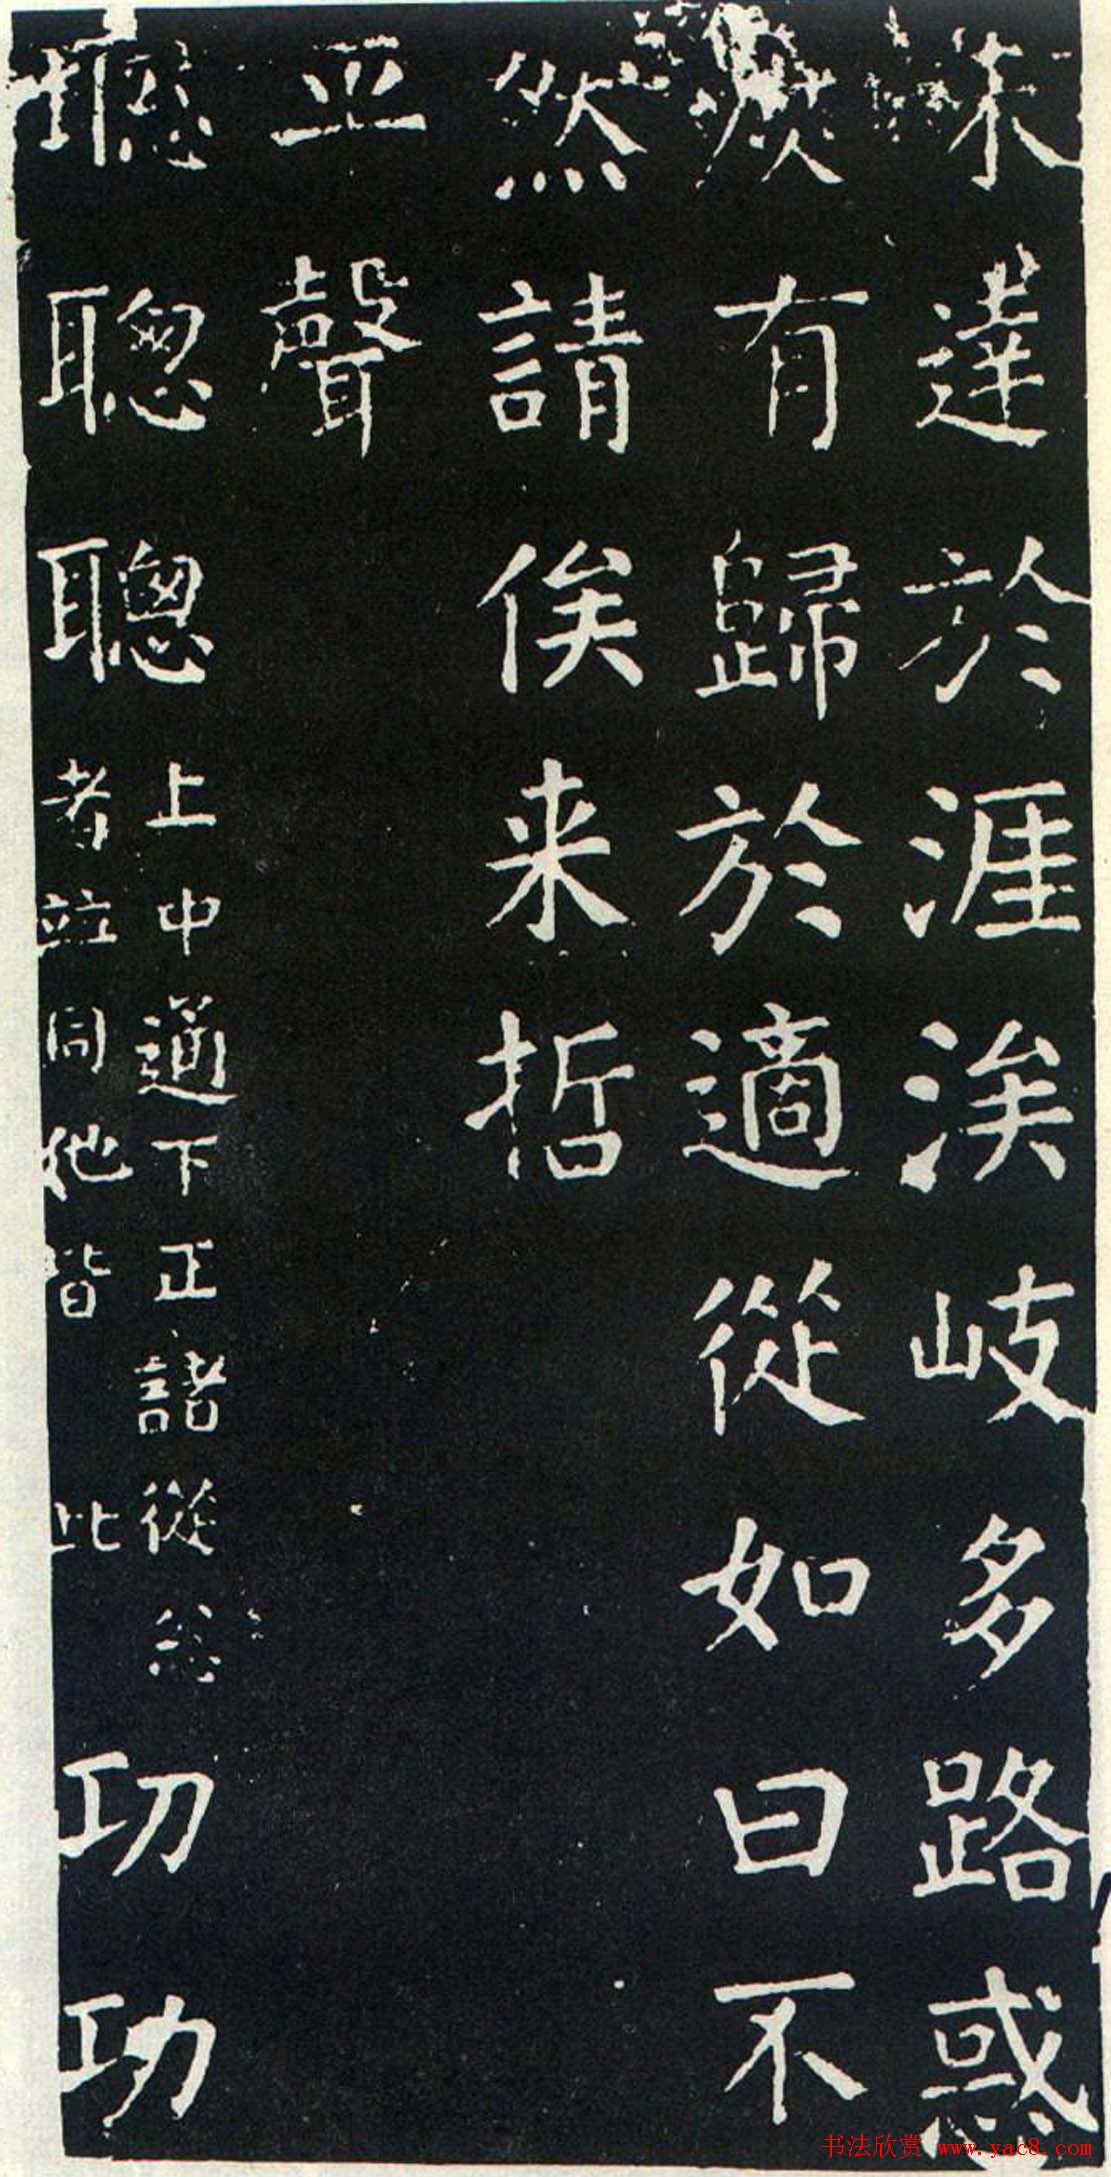 未達於涯涘岐多路惑
庶有歸於適從如曰不
然請俟来哲
平聲
聡聦聰
上中通下正諸從忩
者竝同他皆此
㓛功
书法欣赏 www.yac8.com